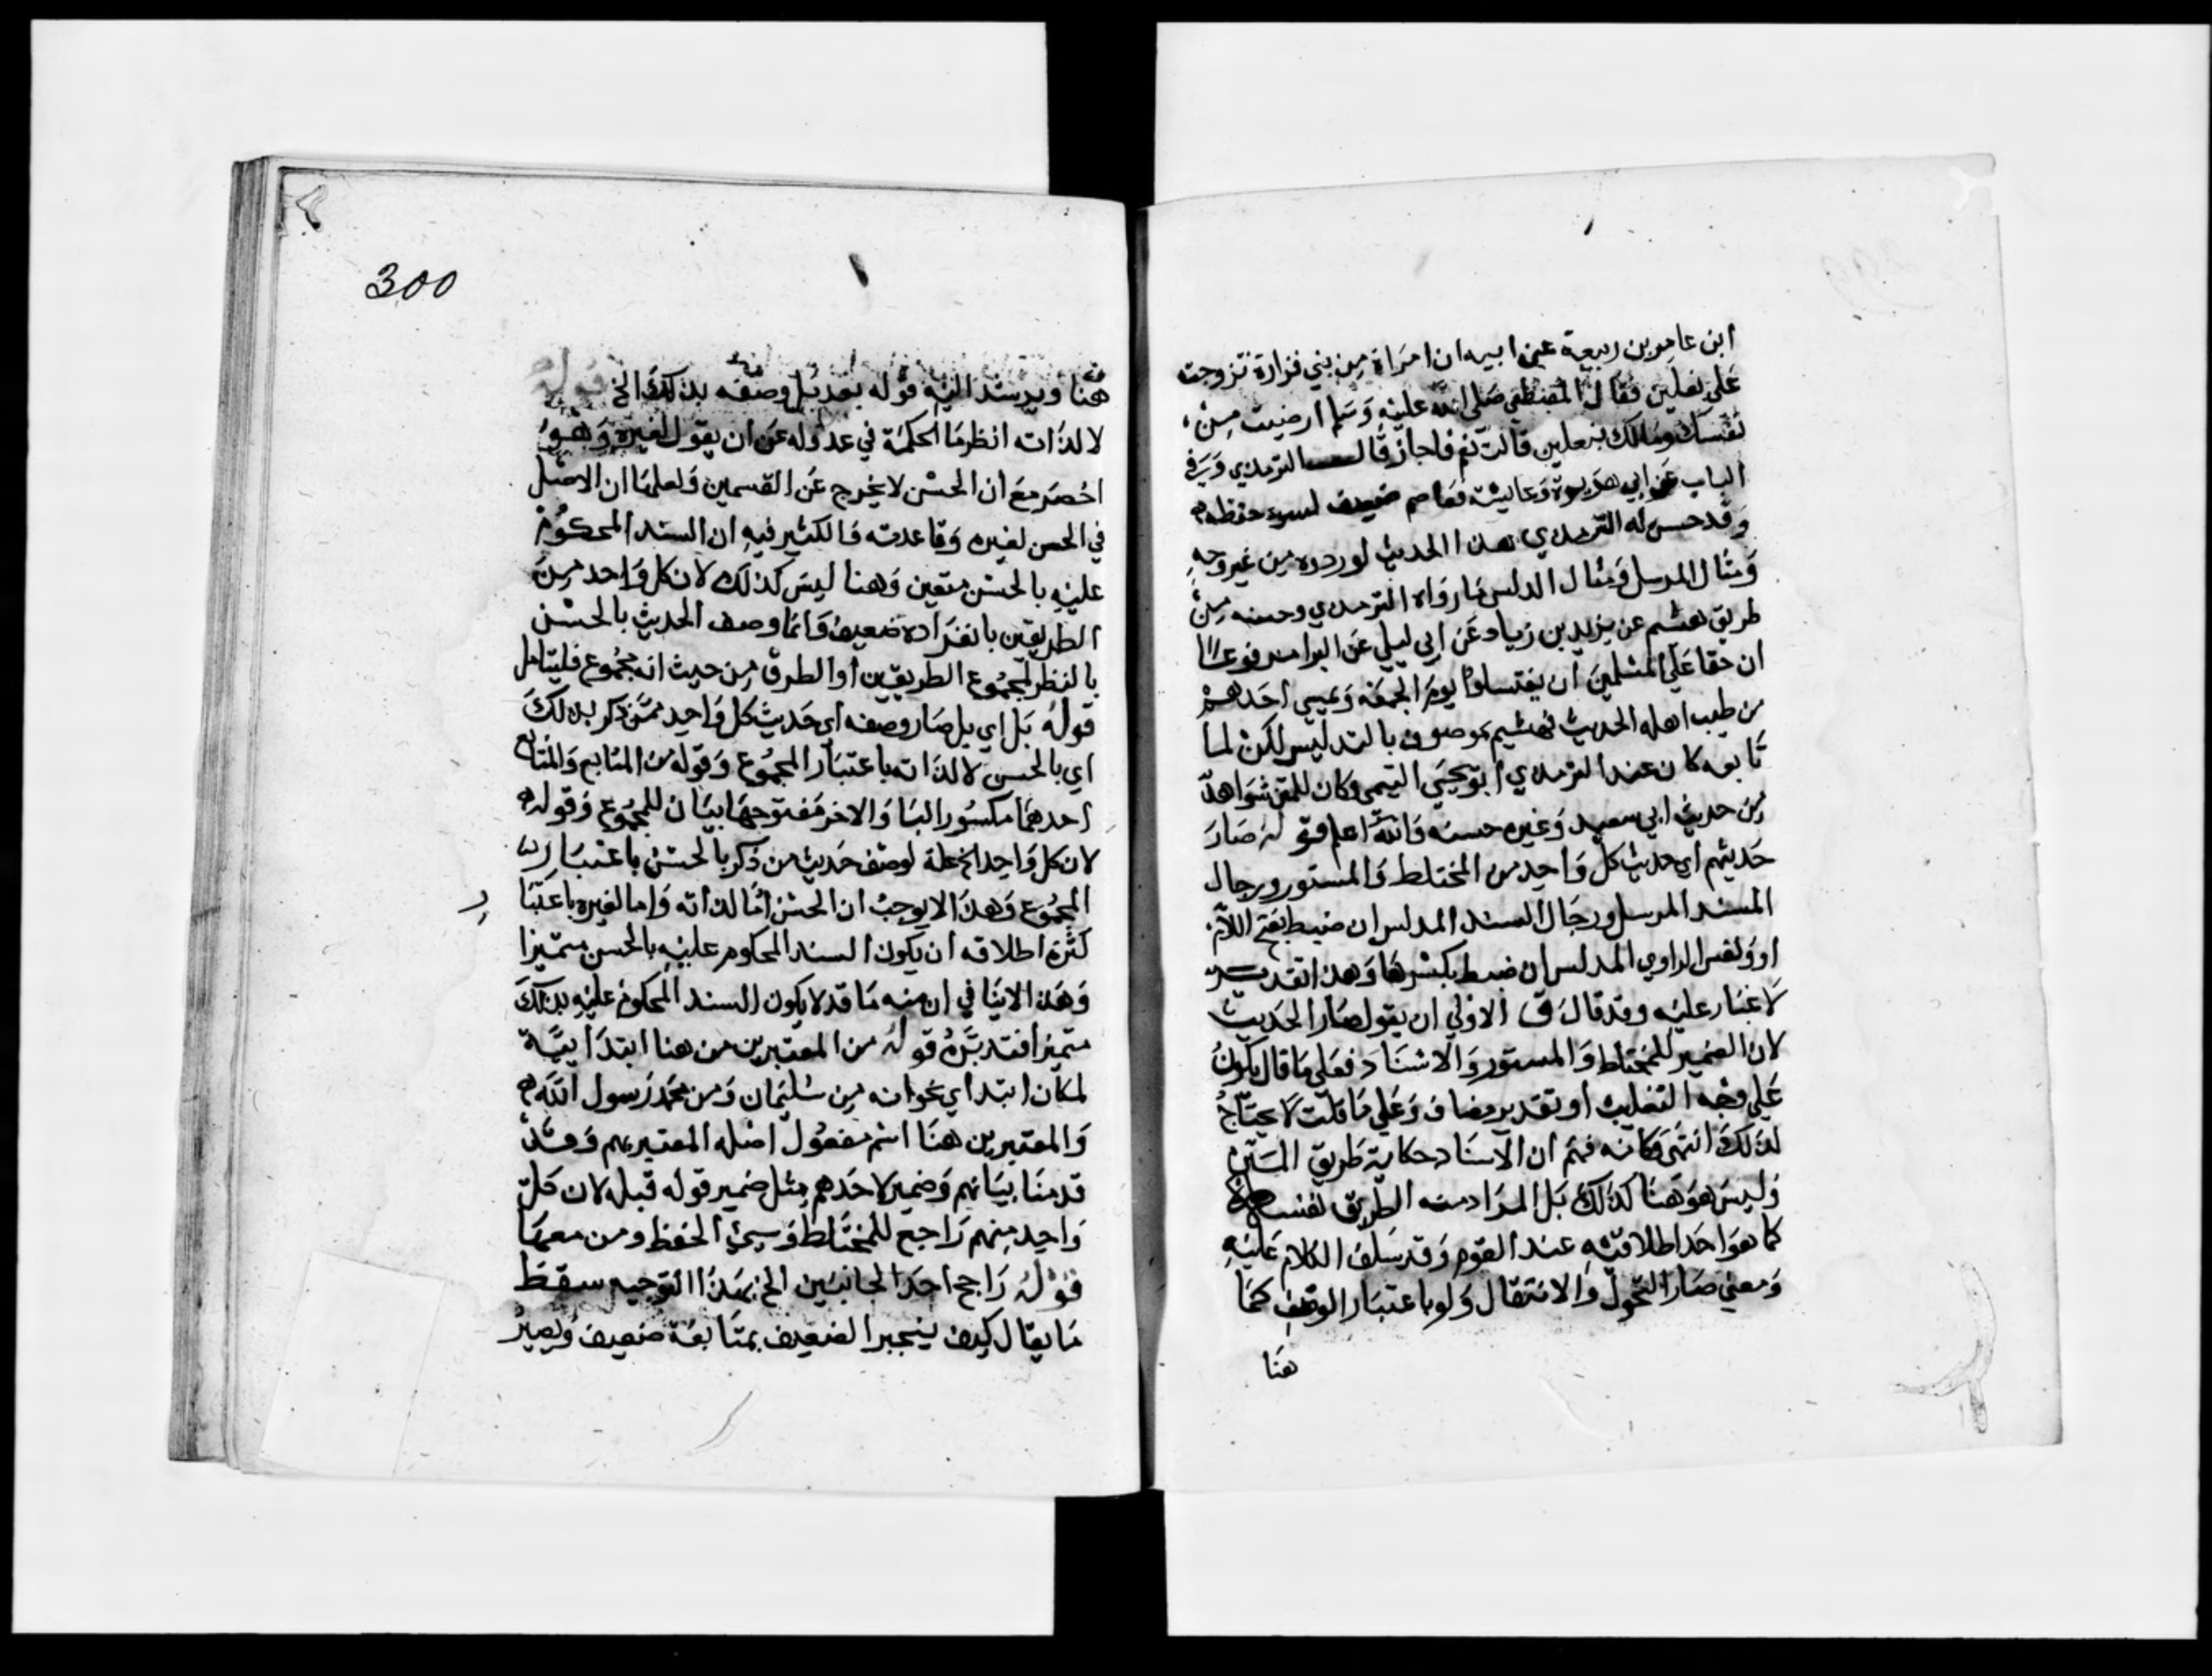 ابن عامر بن ربيعة عن ابيه ان امراة من بني فزارة تزوجت
على نعلين فقال المصطفى صلى الله عليه وسلم ارضيت من
نفسك ومالك بنعلين قالت نعم فاجاز قال الترمذي وفي
الباب عن ابي هريرة وعايشة فعاصم ضعيف لسوء حفظه
وقد حسن له الترمذي هذا الحديث لوروده من غير وجه
ومثال المرسل ومثال المدلس ما رواه الترمذي وحسنه من
طريق هشيم عن يزيد بن زياد عن ابي ليلي عن البرا مرفوعا
ان حقا علي المسلمين ان يغتسلوا يوم الجمعة وعيسي احدهم
من طيب اهله الحديث فهشيم موصوف بالتدليس لكن لما
تابعه كان عند الترمذي ابو يحيى التيمي وكان للمتن شواهد
من حديث ابي سعيد وغيره حسنه والله اعلم قوله صار
حديثهم اي حديث كل واحد من المختلط والمستور ورجال
المسند المرسل ورجال السند المدلس ان ضبط بفتح اللام
او ولنفس الراوي المدلس ان ضبط بكسرها وهذا تقدير
لا غبار عليه وقد قال ق الاولي ان يقول صار الحديث
لان الضمير للمختلط والمستور والاسناد فعلي ما قال يكون
علي وجه التغليب او تقدير مضاف وعلي ما قلت لا يحتاج
لذلك انتهى وكانه فهم ان الاسناد حكاية طريق المتن
وليس هو هنا كذلك بل المراد منه الطريق نفسها
كما هو احد اطلاقيه عند القوم وقد سلف الكلام عليه
ومعني صار التحول والانتقال ولو باعتبار الوصف كما
هنا
300
هنا ويرشد اليه قوله بعد بل وصفه بذلك الخ قوله
لا لذاته انظر ما الحكمة في عدوله عن ان يقول لغيره وهو
اخصر مع ان الحسن لا يخرج عن القسمين ولعلها ان الاصل
في الحسن لغيره وقاعدته فالكثير فيه ان السند المحكوم
عليه بالحسن متعين وهنا ليس كذلك لان كل واحد من
الطريقين بانفراده ضعيف وانما وصف الحديث بالحسن
بالنظر لمجموع الطريقين او الطرق من حيث انه مجموع فليتامل
قوله بل اي بل صار وصفه اي حديث كل واحد ممن ذكر بذلك
اي بالحسن لا لذاته باعتبار المجموع وقوله من المتابع والمتابع
احدهما مكسور البا والاخر مفتوحها بيان للمجموع وقوله
لان كل واحد الخ علة لوصف حديث من ذكر بالحسن باعتبار
المجموع وهذا لا يوجب ان الحسن اما لذاته واما لغيره باعتبا
ر
كثرة اطلاقه ان يكون السند المحكوم عليه بالحسن متميزا
وهذا لا ينافي ان منه ما قد لا يكون السند المحكوم عليه بذلك
متميزا فتدبره قوله من المعتبرين من هنا ابتدايية
لمكان ابتداي نحو انه من سليمان ومن محمد رسول الله
والمعتبرين هنا اسم مفعول اصله المعتبر بهم وقد
قدمنا بيانهم وضمير لاحدهم مثل ضمير قوله قبله لان كل
واحد منهم راجع للمختلط وسيئ الحفظ ومن معهما
قوله راجح احد الجانبين الخ بهذا التوجيه سقط
ما يقال كيف ينجبر الضعيف بمتابعة ضعيف ويصير